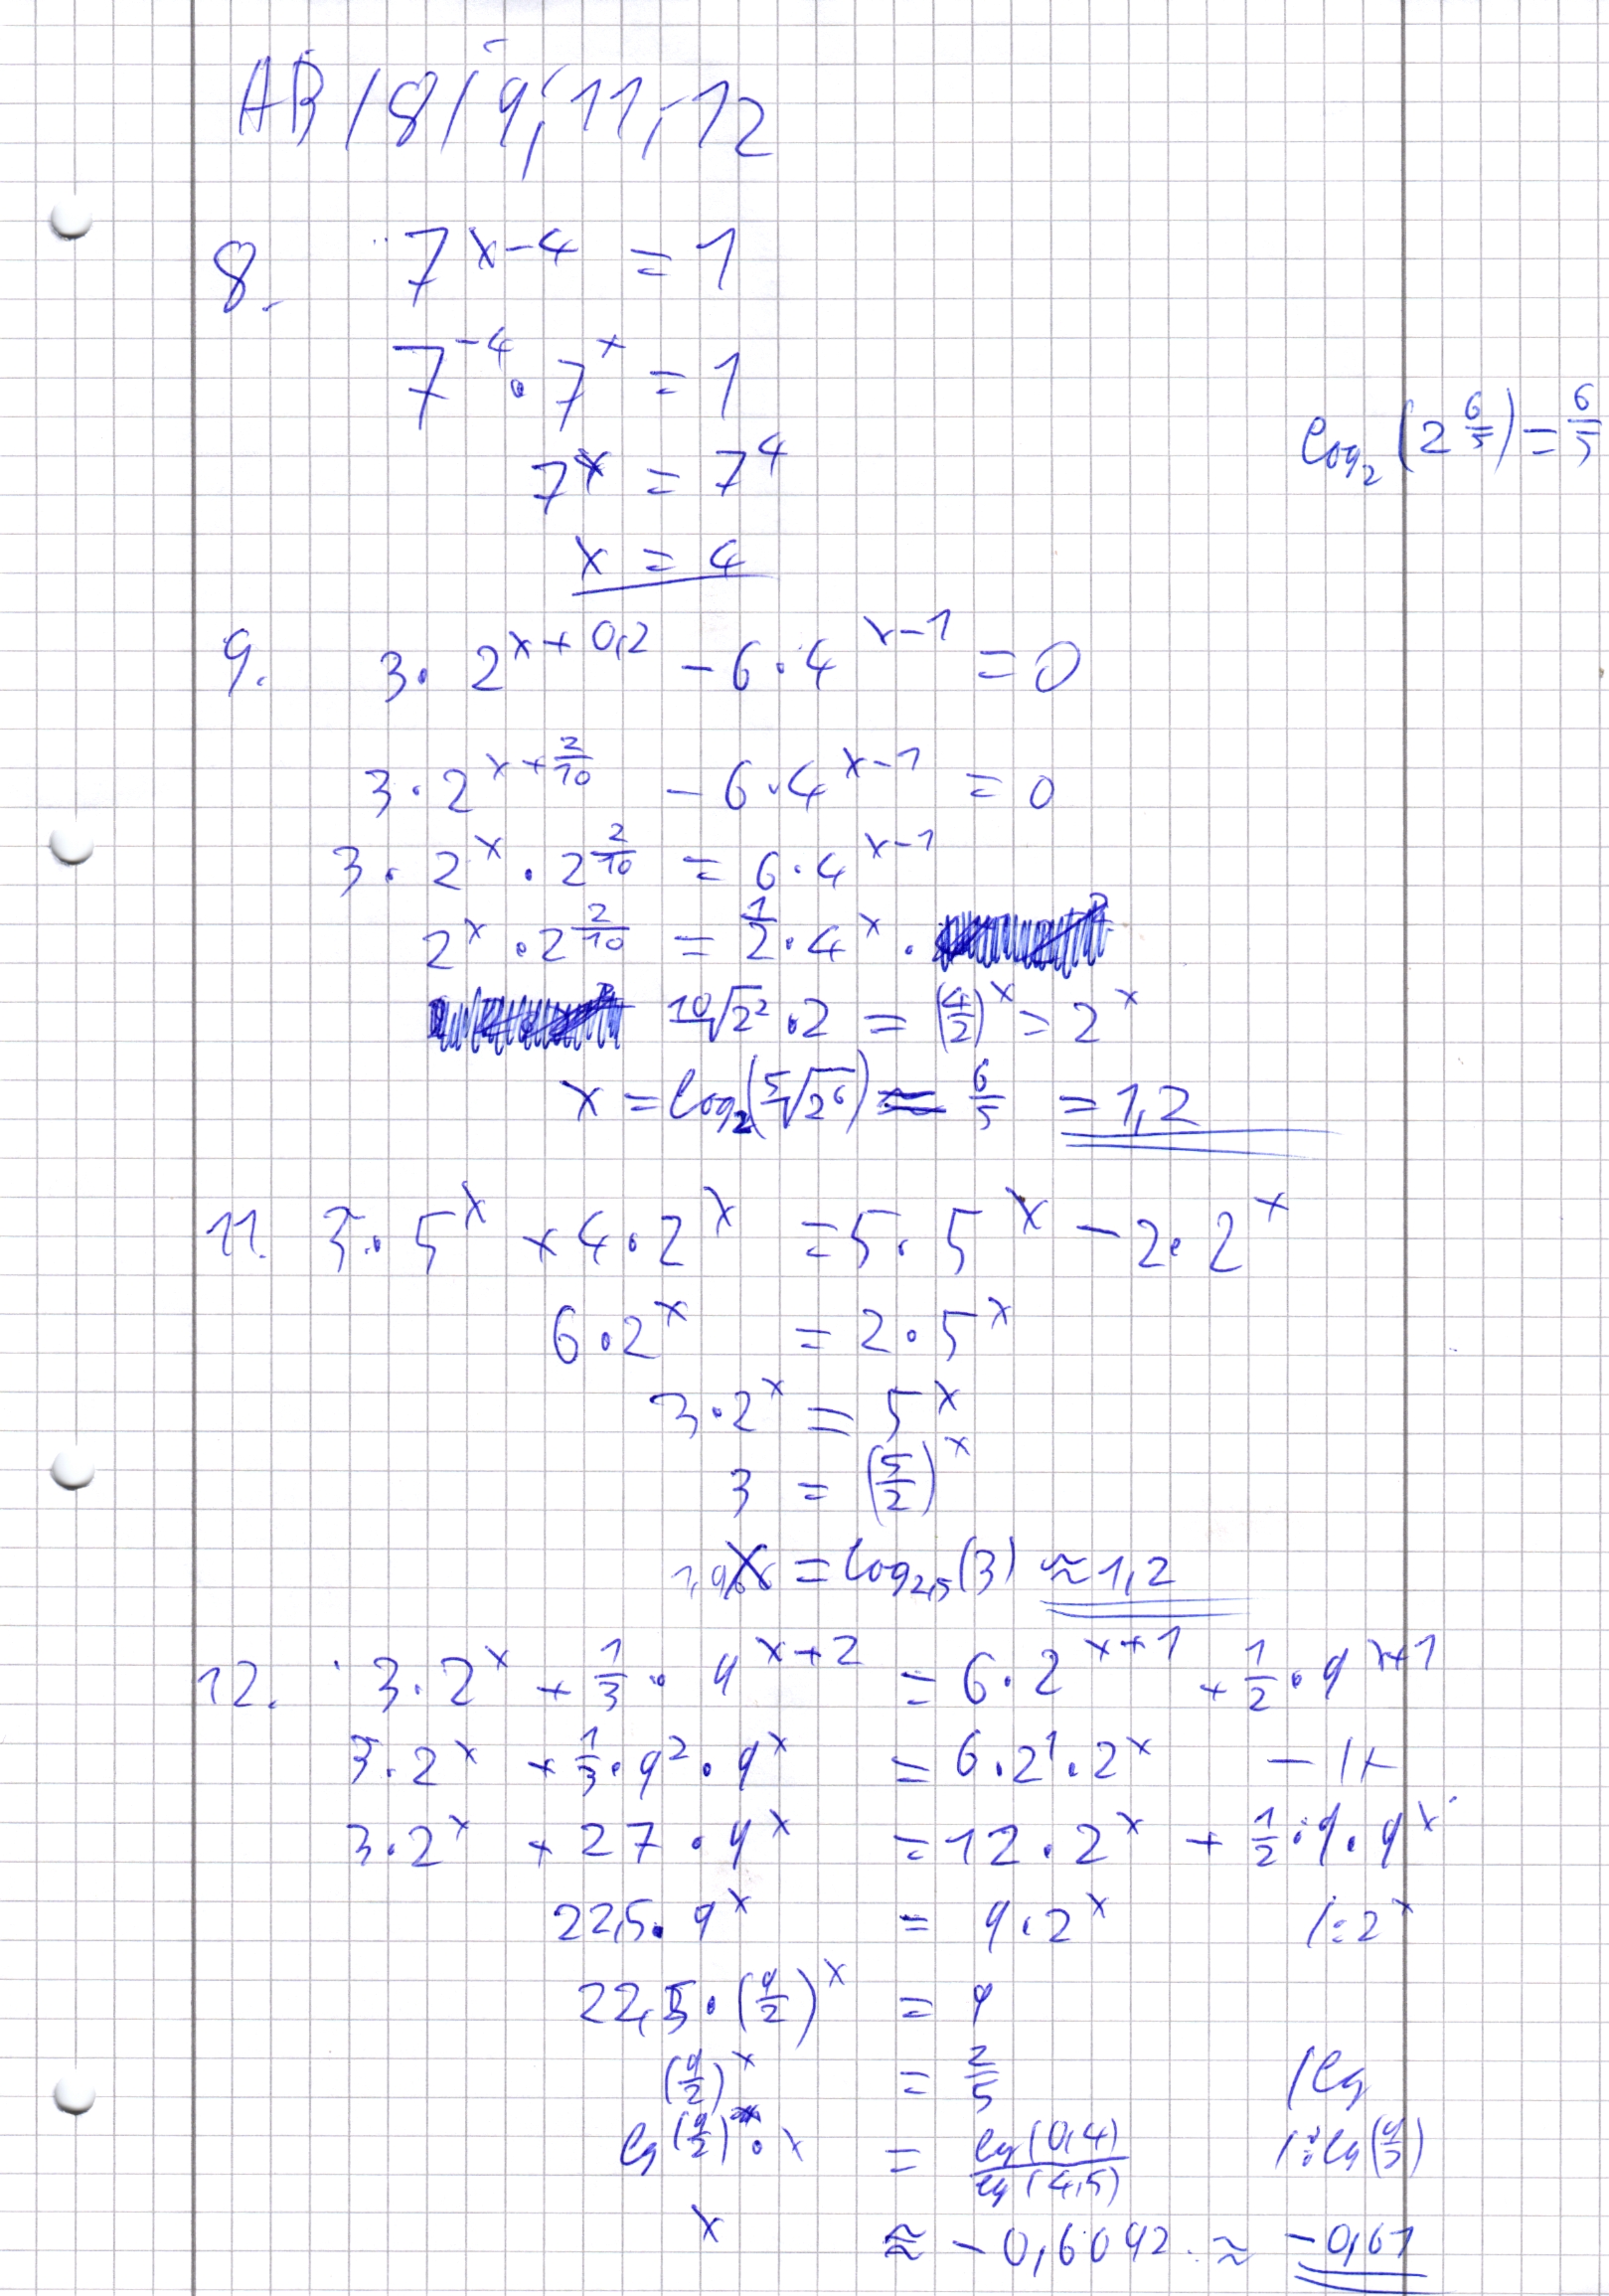 AB/8/9;11;12
8. 7^(x-4) = 1
7^(-4) · 7^x = 1
7^x = 7^4
log₂(2^(6/5)) = 6/5
x = 4
9. 3 · 2^(x+0,2) - 6 · 4^(x-1) = 0
3 · 2^(x+2/10) - 6 · 4^(x-1) = 0
3 · 2^x · 2^(2/10) = 6 · 4^(x-1)
2^x · 2^(2/10) = 1/2 · 4^x ·
¹⁰√(2²) · 2 = (4/2)^x = 2^x
x = log₂(⁵√(2⁶)) = 6/5 = 1,2
11. 3 · 5^x + 4 · 2^x = 5 · 5^x - 2 · 2^x
6 · 2^x = 2 · 5^x
3 · 2^x = 5^x
3 = (5/2)^x
x = log₂,₅(3) ≈ 1,2
12. 3 · 2^x + 1/3 · 9^(x+2) = 6 · 2^(x+1) + 1/2 · 9^(x+1)
3 · 2^x + 1/3 · 9² · 9^x = 6 · 2¹ · 2^x - 11 -
3 · 2^x + 27 · 9^x = 12 · 2^x + 1/2 · 9 · 9^x
22,5 · 9^x = 9 · 2^x /:2^x
22,5 · (9/2)^x = 9
(9/2)^x = 2/5 /lg
lg(9/2) · x = lg(0,4)/lg(4,5) /:lg(9/2)
x ≈ -0,6092 ≈ -0,61